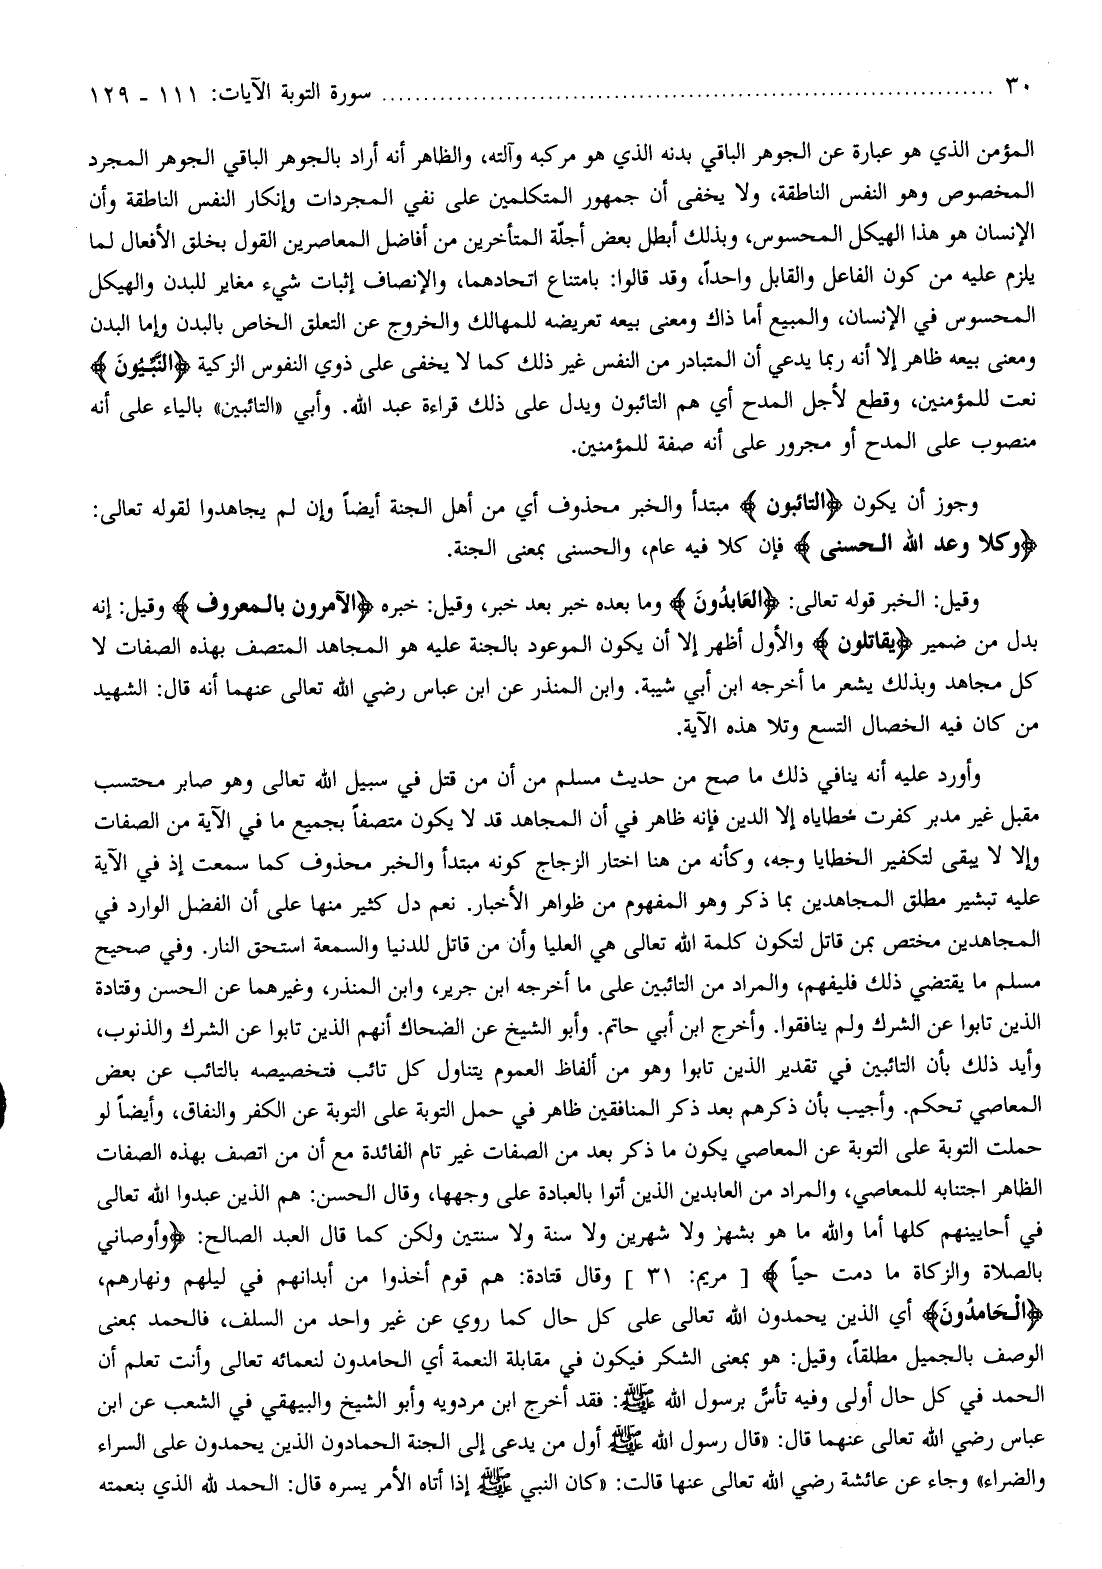 ٣٠ ........................................................................ سورة التوبة الآيات: ١١١ - ١٢٩
المؤمن الذي هو عبارة عن الجوهر الباقي بدنه الذي هو مركبه وآلته، والظاهر أنه أراد بالجوهر الباقي الجوهر المجرد
المخصوص وهو النفس الناطقة، ولا يخفى أن جمهور المتكلمين على نفي المجردات وإنكار النفس الناطقة وأن
الإنسان هو هذا الهيكل المحسوس، وبذلك أبطل بعض أجلّة المتأخرين من أفاضل المعاصرين القول بخلق الأفعال لما
يلزم عليه من كون الفاعل والقابل واحداً، وقد قالوا: بامتناع اتحادهما، والإنصاف إثبات شيء مغاير للبدن والهيكل
المحسوس في الإنسان، والمبيع أما ذاك ومعنى بيعه تعريضه للمهالك والخروج عن التعلق الخاص بالبدن وإما البدن
ومعنى بيعه ظاهر إلا أنه ربما يدعي أن المتبادر من النفس غير ذلك كما لا يخفى على ذوي النفوس الزكية ﴿ ﴾
نعت للمؤمنين، وقطع لأجل المدح أي هم التائبون ويدل على ذلك قراءة عبد الله. وأبي «التائبين» بالياء على أنه
منصوب على المدح أو مجرور على أنه صفة للمؤمنين.
وجوز أن يكون ﴿التائبون﴾ مبتدأ والخبر محذوف أي من أهل الجنة أيضاً وإن لم يجاهدوا لقوله تعالى:
﴿وكلا وعد الله الحسنى﴾ فإن كلا فيه عام، والحسنى بمعنى الجنة.
وقيل: الخبر قوله تعالى: ﴿العَابِدُونَ﴾ وما بعده خبر بعد خبر، وقيل: خبره ﴿الآمرون بالمعروف﴾ وقيل: إنه
بدل من ضمير ﴿يقاتلون﴾ والأول أظهر إلا أن يكون الموعود بالجنة عليه هو المجاهد المتصف بهذه الصفات لا
كل مجاهد وبذلك يشعر ما أخرجه ابن أبي شيبة. وابن المنذر عن ابن عباس رضي الله تعالى عنهما أنه قال: الشهيد
من كان فيه الخصال التسع وتلا هذه الآية.
وأورد عليه أنه ينافي ذلك ما صح من حديث مسلم من أن من قتل في سبيل الله تعالى وهو صابر محتسب
مقبل غير مدبر كفرت خطاياه إلا الدين فإنه ظاهر في أن المجاهد قد لا يكون متصفاً بجميع ما في الآية من الصفات
وإلا لا يبقى لتكفير الخطايا وجه، وكأنه من هنا اختار الزجاج كونه مبتدأ والخبر محذوف كما سمعت إذ في الآية
عليه تبشير مطلق المجاهدين بما ذكر وهو المفهوم من ظواهر الأخبار. نعم دل كثير منها على أن الفضل الوارد في
المجاهدين مختص بمن قاتل لتكون كلمة الله تعالى هي العليا وأن من قاتل للدنيا والسمعة استحق النار. وفي صحيح
مسلم ما يقتضي ذلك فليفهم، والمراد من التائبين على ما أخرجه ابن جرير، وابن المنذر، وغيرهما عن الحسن وقتادة
الذين تابوا عن الشرك ولم ينافقوا. وأخرج ابن أبي حاتم. وأبو الشيخ عن الضحاك أنهم الذين تابوا عن الشرك والذنوب،
وأيد ذلك بأن التائبين في تقدير الذين تابوا وهو من ألفاظ العموم يتناول كل تائب فتخصيصه بالتائب عن بعض
المعاصي تحكم. وأجيب بأن ذكرهم بعد ذكر المنافقين ظاهر في حمل التوبة على التوبة عن الكفر والنفاق، وأيضاً لو
حملت التوبة على التوبة عن المعاصي يكون ما ذكر بعد من الصفات غير تام الفائدة مع أن من اتصف بهذه الصفات
الظاهر اجتنابه للمعاصي، والمراد من العابدين الذين أتوا بالعبادة على وجهها، وقال الحسن: هم الذين عبدوا الله تعالى
في أحايينهم كلها أما والله ما هو بشهر ولا شهرين ولا سنة ولا سنتين ولكن كما قال العبد الصالح: ﴿وأوصاني
بالصلاة والزكاة ما دمت حياً﴾ [ مريم: ٣١ ] وقال قتادة: هم قوم أخذوا من أبدانهم في ليلهم ونهارهم،
﴿الْحَامدُونَ﴾ أي الذين يحمدون الله تعالى على كل حال كما روي عن غير واحد من السلف، فالحمد بمعنى
الوصف بالجميل مطلقاً، وقيل: هو بمعنى الشكر فيكون في مقابلة النعمة أي الحامدون لنعمائه تعالى وأنت تعلم أن
الحمد في كل حال أولى وفيه تأسٍّ برسول الله ﷺ: فقد أخرج ابن مردويه وأبو الشيخ والبيهقي في الشعب عن ابن
عباس رضي الله تعالى عنهما قال: «قال رسول الله ﷺ أول من يدعى إلى الجنة الحمادون الذين يحمدون على السراء
والضراء» وجاء عن عائشة رضي الله تعالى عنها قالت: «كان النبي ﷺ إذا أتاه الأمر يسره قال: الحمد لله الذي بنعمته